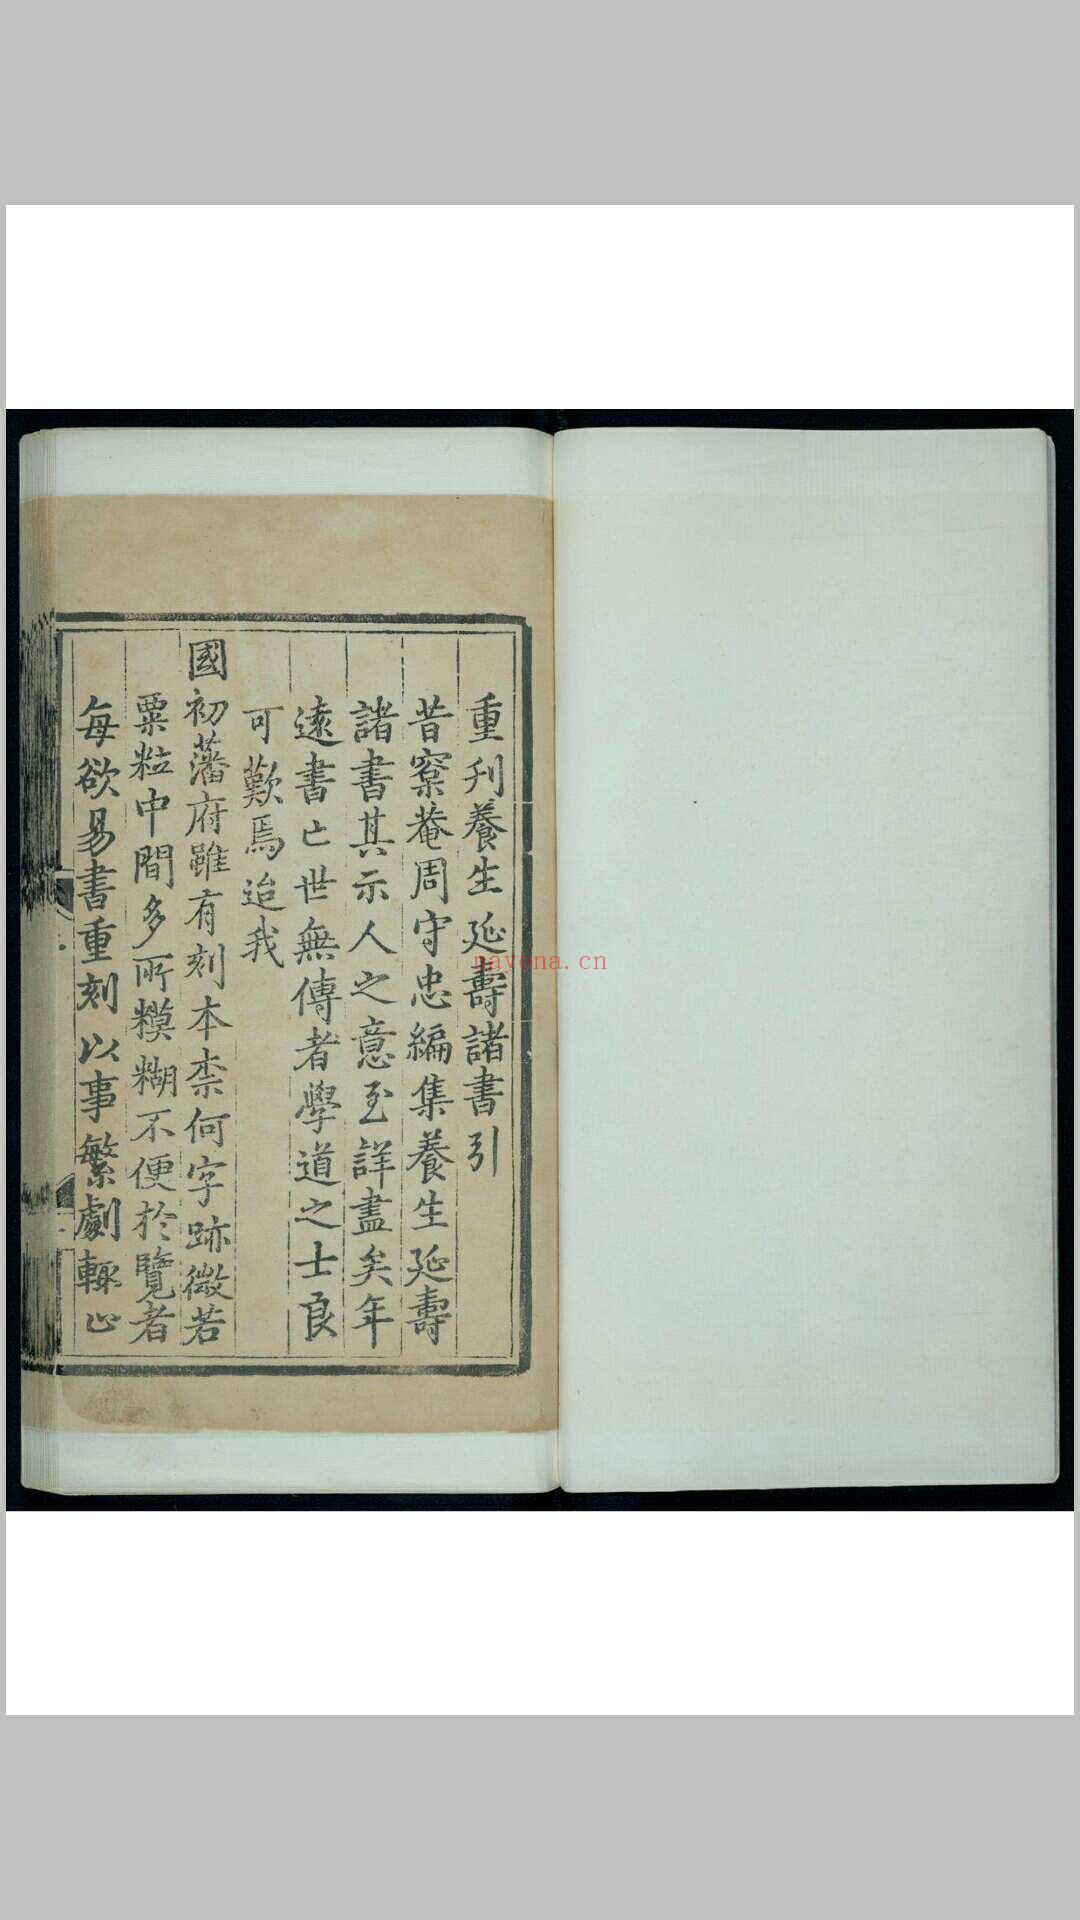 重刋養生延壽諸書引
昔寮菴周守忠編集養生延壽
諸書其示人之意至詳盡矣年
遠書亡世無傳者學道之士良
可歎焉迨我
國初藩府雖有刻本柰何字跡微若
粟粒中間多所糢糊不便於覽者
每欲易書重刻以事繁劇輒止
nayona.cn